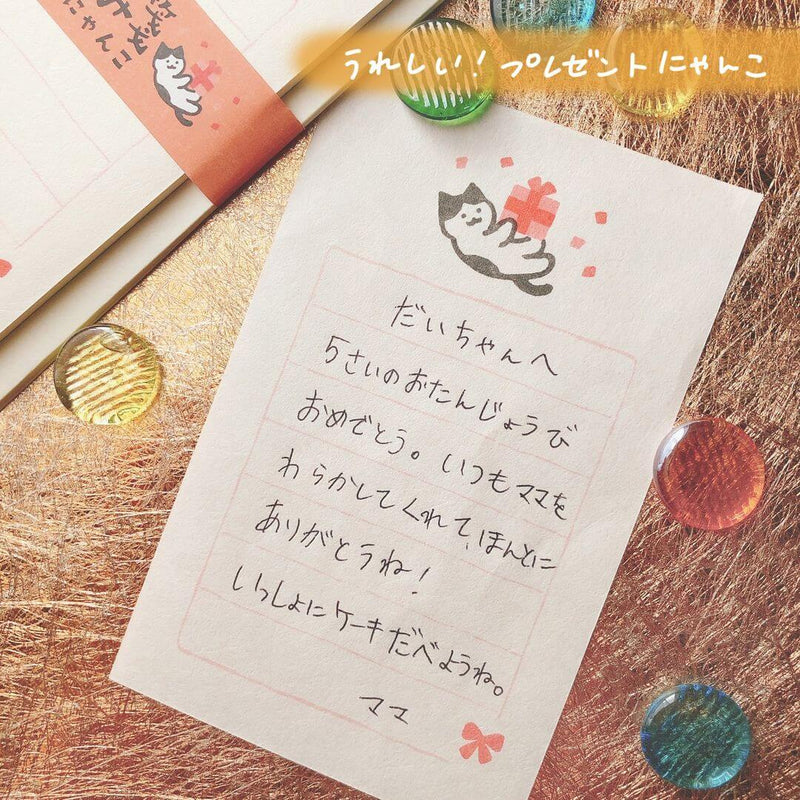 うれしい！プレゼントにゃんこ
にゃんこ
だいちゃんへ
5さいのおたんじょうび
おめでとう。いつもママを
わらかしてくれて、ほんとに
ありがとうね！
いっしょにケーキたべようね。
ママ